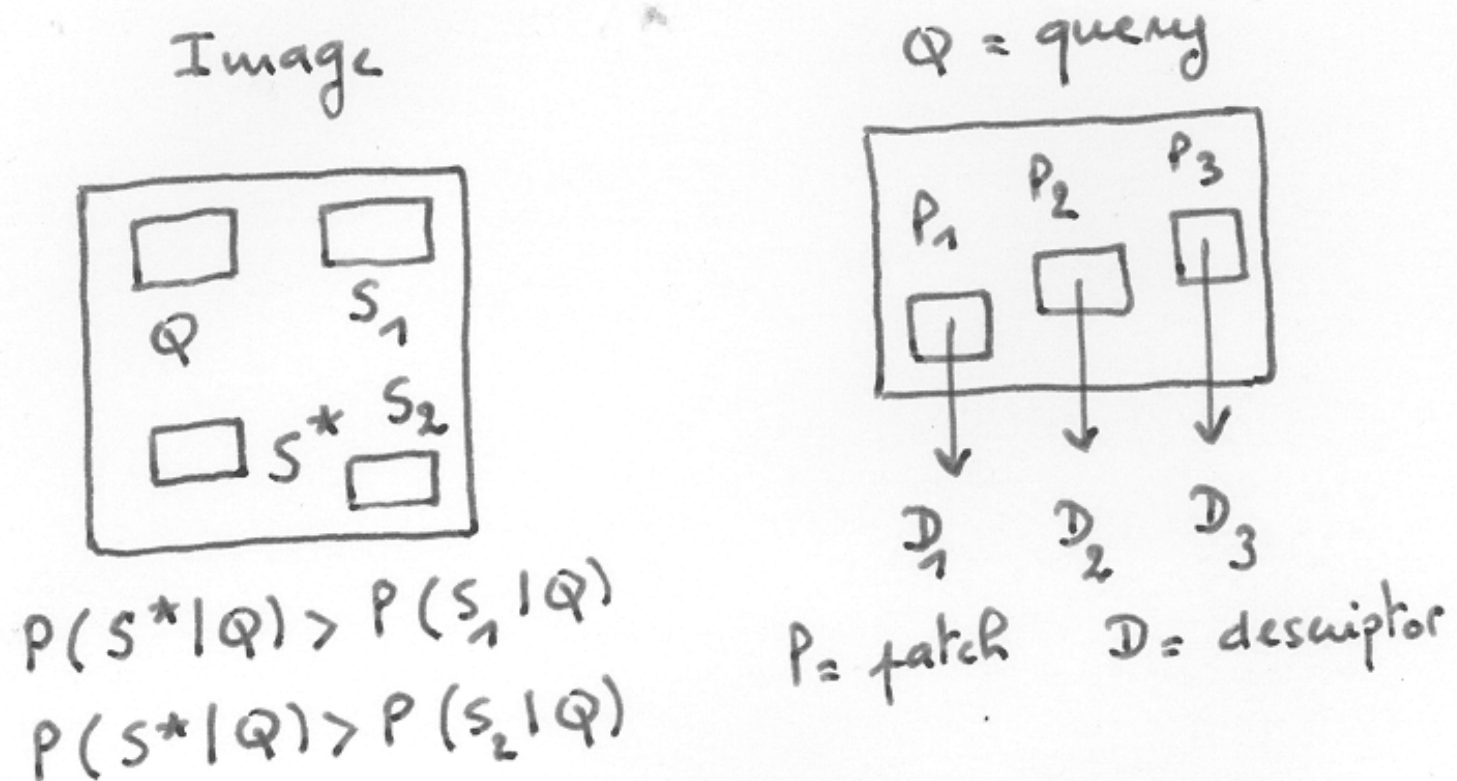 Image
Q
S₁
S*
S₂
P(S*|Q) > P(S₁|Q)
P(S*|Q) > P(S₂|Q)
Q = query
P₁
P₂
P₃
D₁
D₂
D₃
P = patch D = descriptor